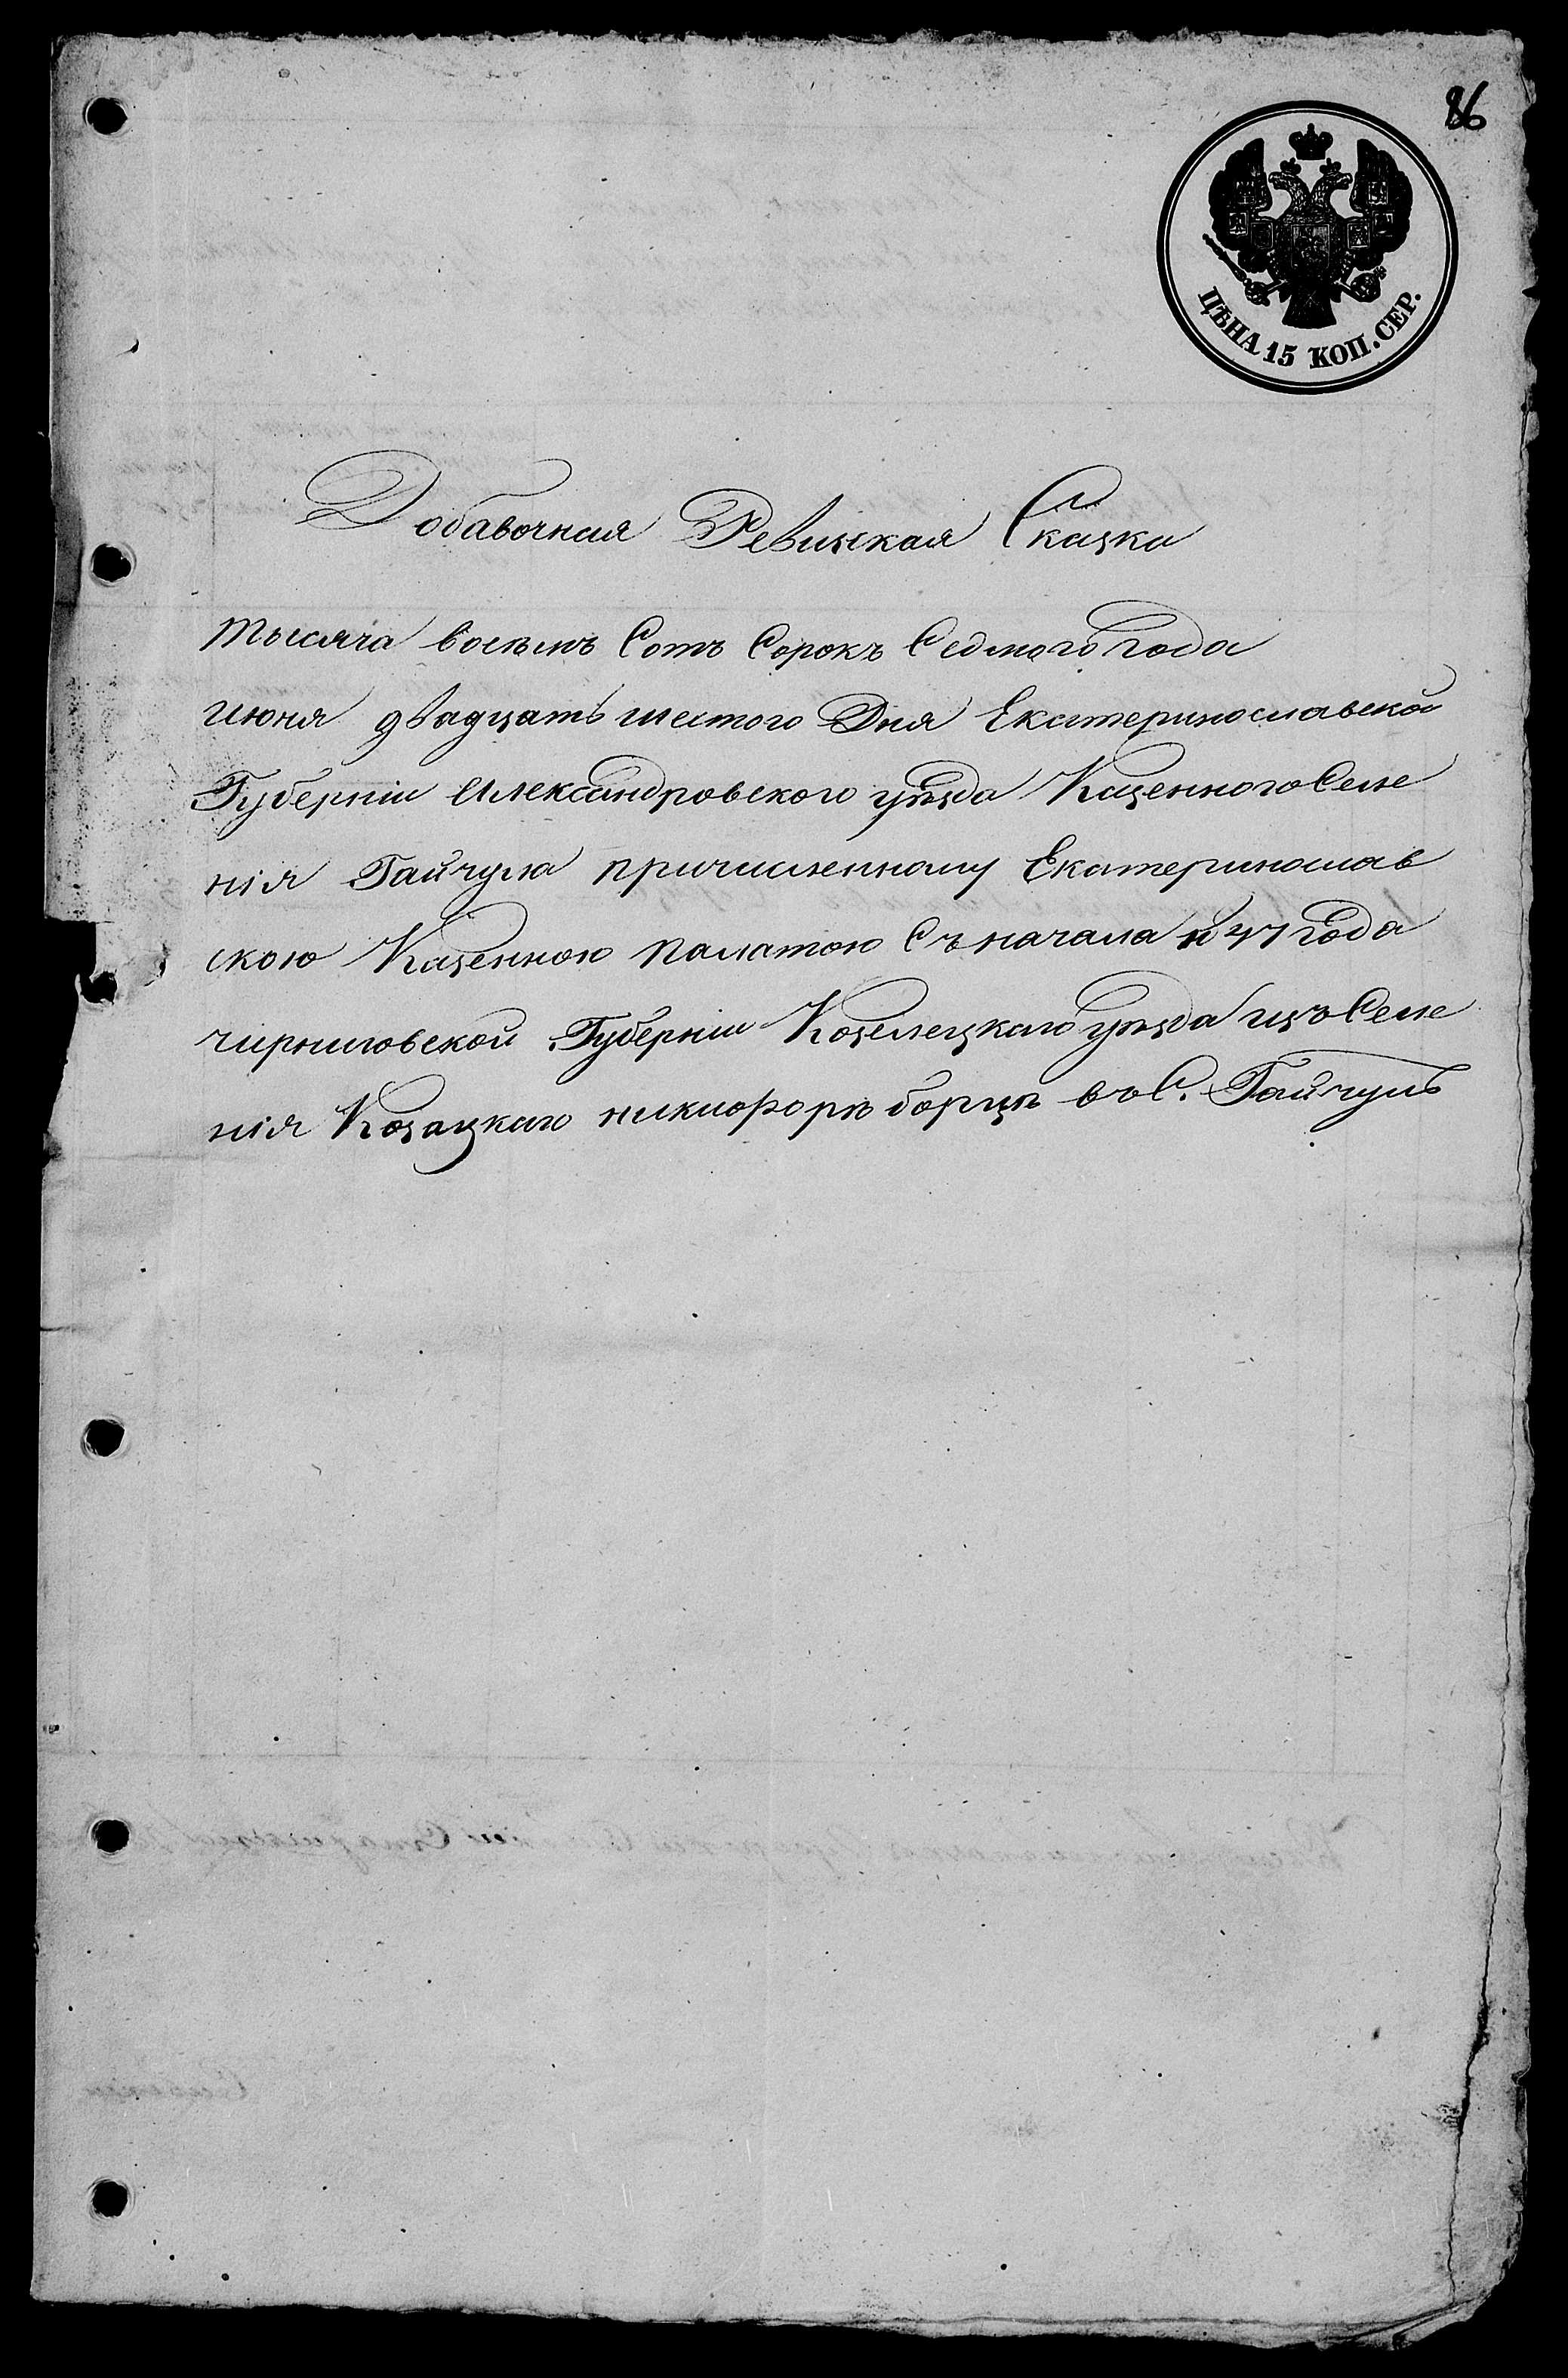 86
ЦѢНА 15 КОП. СЕР.
Добавочная Ревизская Сказка
тысяча восемъ Сотъ Сорокъ Седмого года
июня двадцать шестого Дня Екатеринославской
Губерніи Александровского уѣзда Казенного Селе
нія Гайчула причисленному Екатеринослав
скою Казенною палатою Съ начала 47 года
чирниговской Губерніи Козелецкаго уѣзда изъ Селе
нія Козацкаго никифоръ борщъ въ С. Гайчулъ